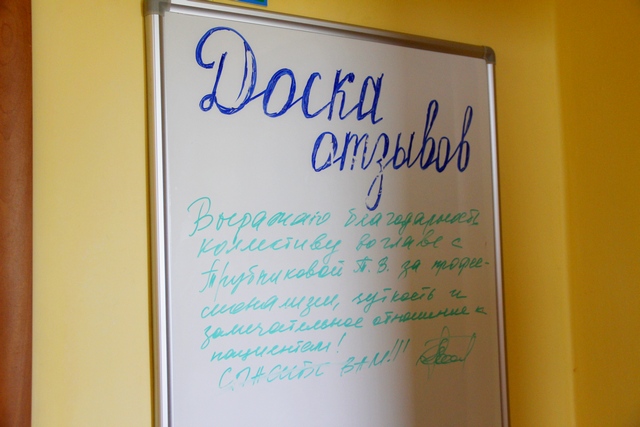 Доска
отзывов
Выражаю благодарность
коллективу во главе с
Трубчиковой Т.В. за профес-
сионализм, чуткость и
замечательное отношение к
пациентам!
СПАСИБО ВАМ!!!